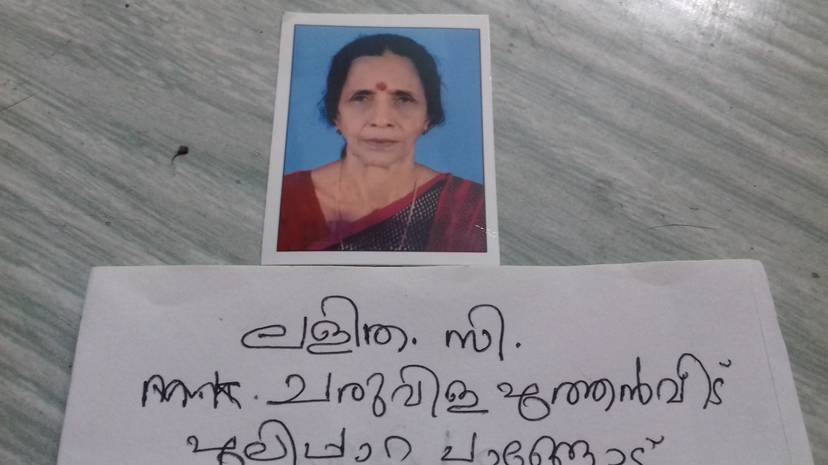 ലളിത. സി.
ചരുവിള പുത്തൻവീട്
പുലിപ്പാറ പാങ്ങോട്